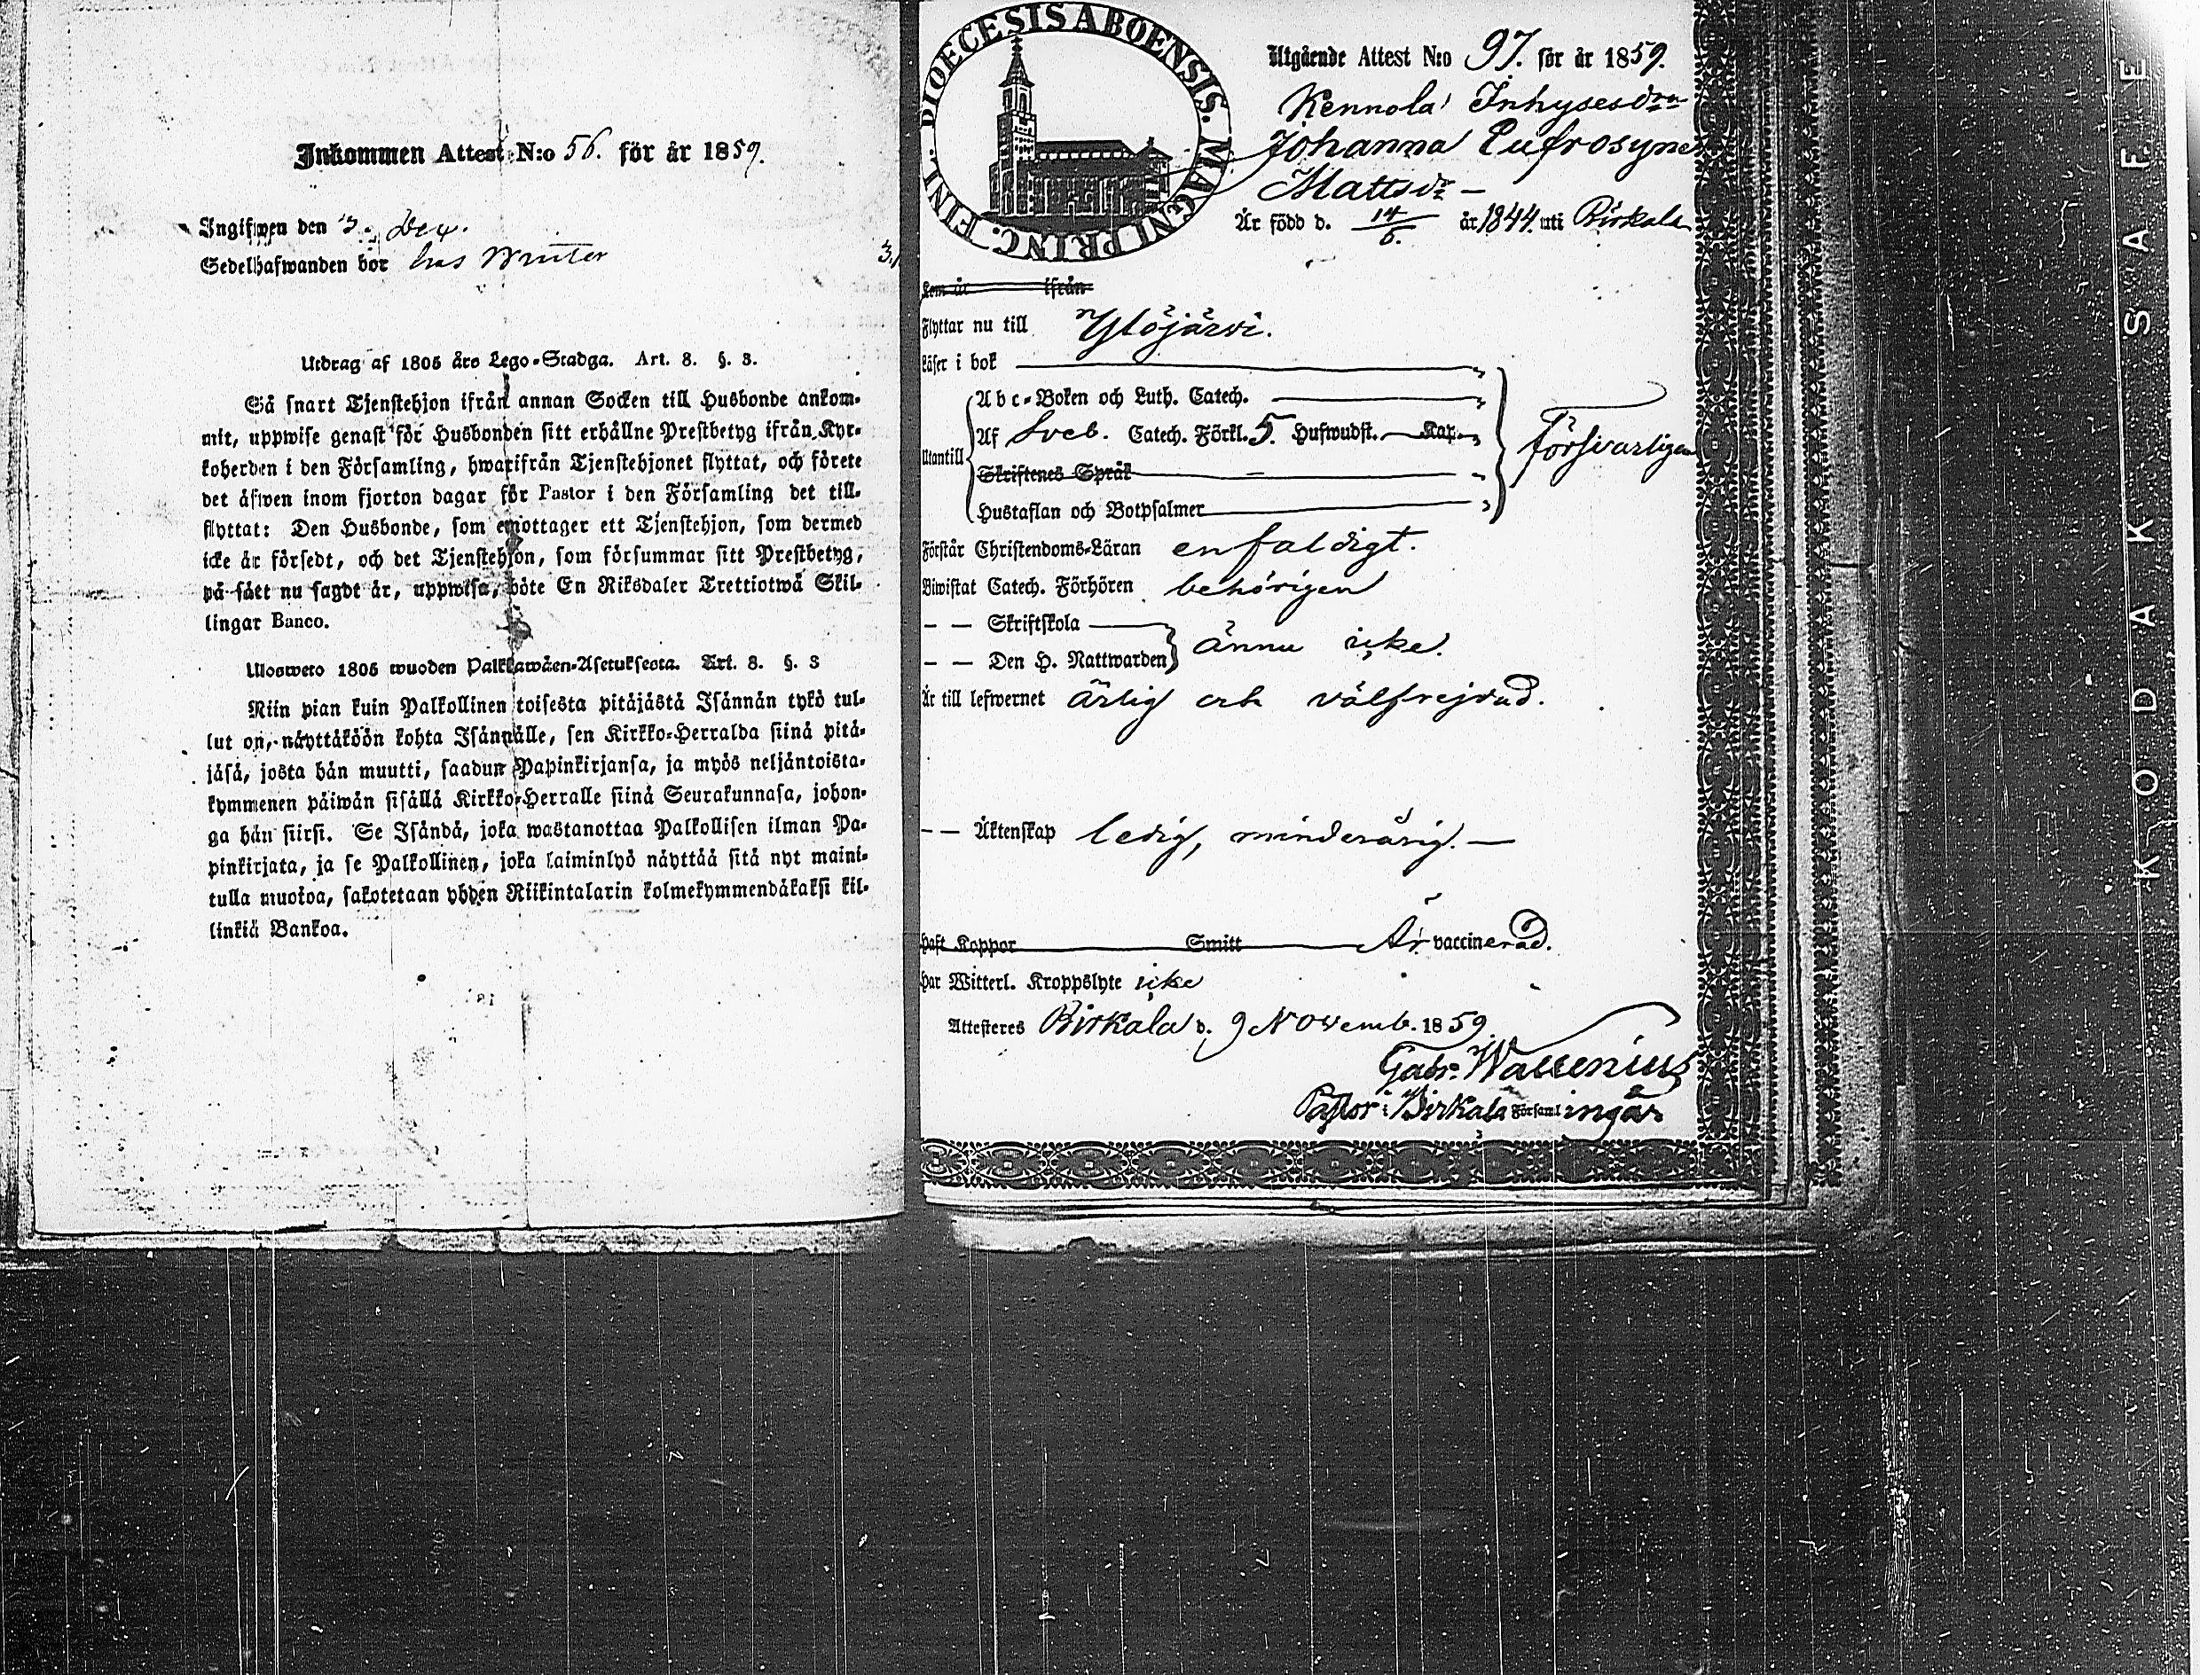 Inkommen Attest N:o 56. för år 1859.
Ingifwen den 3. Dec.
Sedelhafwanden bor hos Winter
Utdrag af 1805 års Lego-Stadga. Art. 8. §. 3.
Så snart Tjenstehjon ifrån annan Socken till Husbonde ankom-
mit, uppwise genast för Husbonden sitt erhållne Prestbetyg ifrån Kyr-
koherden i den Församling, hwarifrån Tjenstehjonet flyttat, och förete
det äfwen inom fjorton dagar för Pastor i den Församling det till-
flyttat: Den Husbonde, som emottager ett Tjenstehjon, som dermed
icke är försedt, och det Tjenstehjon, som försummar sitt Prestbetyg,
på sätt nu sagdt är, uppwisa, böte En Riksdaler Trettiotwå Skil-
lingar Banco.
Ulosweto 1805 wuoden Palkkawäen-Asetuksesta. Art. 8. §. 3
Niin pian kuin Palkollinen toisesta pitäjästä Isännän tykö tul-
lut on, näyttäköön kohta Isännälle, sen Kirkko-Herralda siinä pitä-
jäsä, josta hän muutti, saadun Papinkirjansa, ja myös neljäntoista-
kymmenen päiwän sisällä Kirkko-Herralle siinä Seurakunnasa, johon-
ga hän siirsi. Se Isändä, joka wastanottaa Palkollisen ilman Pa-
pinkirjata, ja se Palkollinen, joka laiminlyö näyttää sitä nyt maini-
tulla muotoa, sakotetaan yhden Riikintalarin kolmekymmendäkaksi kil-
linkiä Bankoa.
DIOECESIS ABOENSIS. MAGNI PRINC. FINL.
Utgående Attest N:o 97. för år 1859.
Kennola Inhysesdrn
Johanna Eufrosyne
Mattsdr –
Är född d. 14/6. år 1844. uti Birkala
Kom år ifrån
Flyttar nu till Ylöjärvi.
Läser i bok
Abc-Boken och Luth. Catech.
Utantill Af Sveb. Catech. Förkl. 5. Hufwudst. Kap.
Försvarligen
Skriftenes Språk
Hustaflan och Botpsalmer
Förstår Christendoms-Läran enfaldigt.
Biwistat Catech. Förhören behörigen
– – Skriftskola
ännu icke.
– – Den H. Nattwarden
Är till lefwernet ärlig och välfrejdad.
– – Äktenskap ledig, minderårig. –
Haft Koppor Smitt Är vaccinerad.
Har Witterl. Kroppslyte icke
Attesteres Birkala d. 9 Novemb. 1859.
Gabr. Wallenius
Pastor i Birkala Församlingar
KODAK SAFE